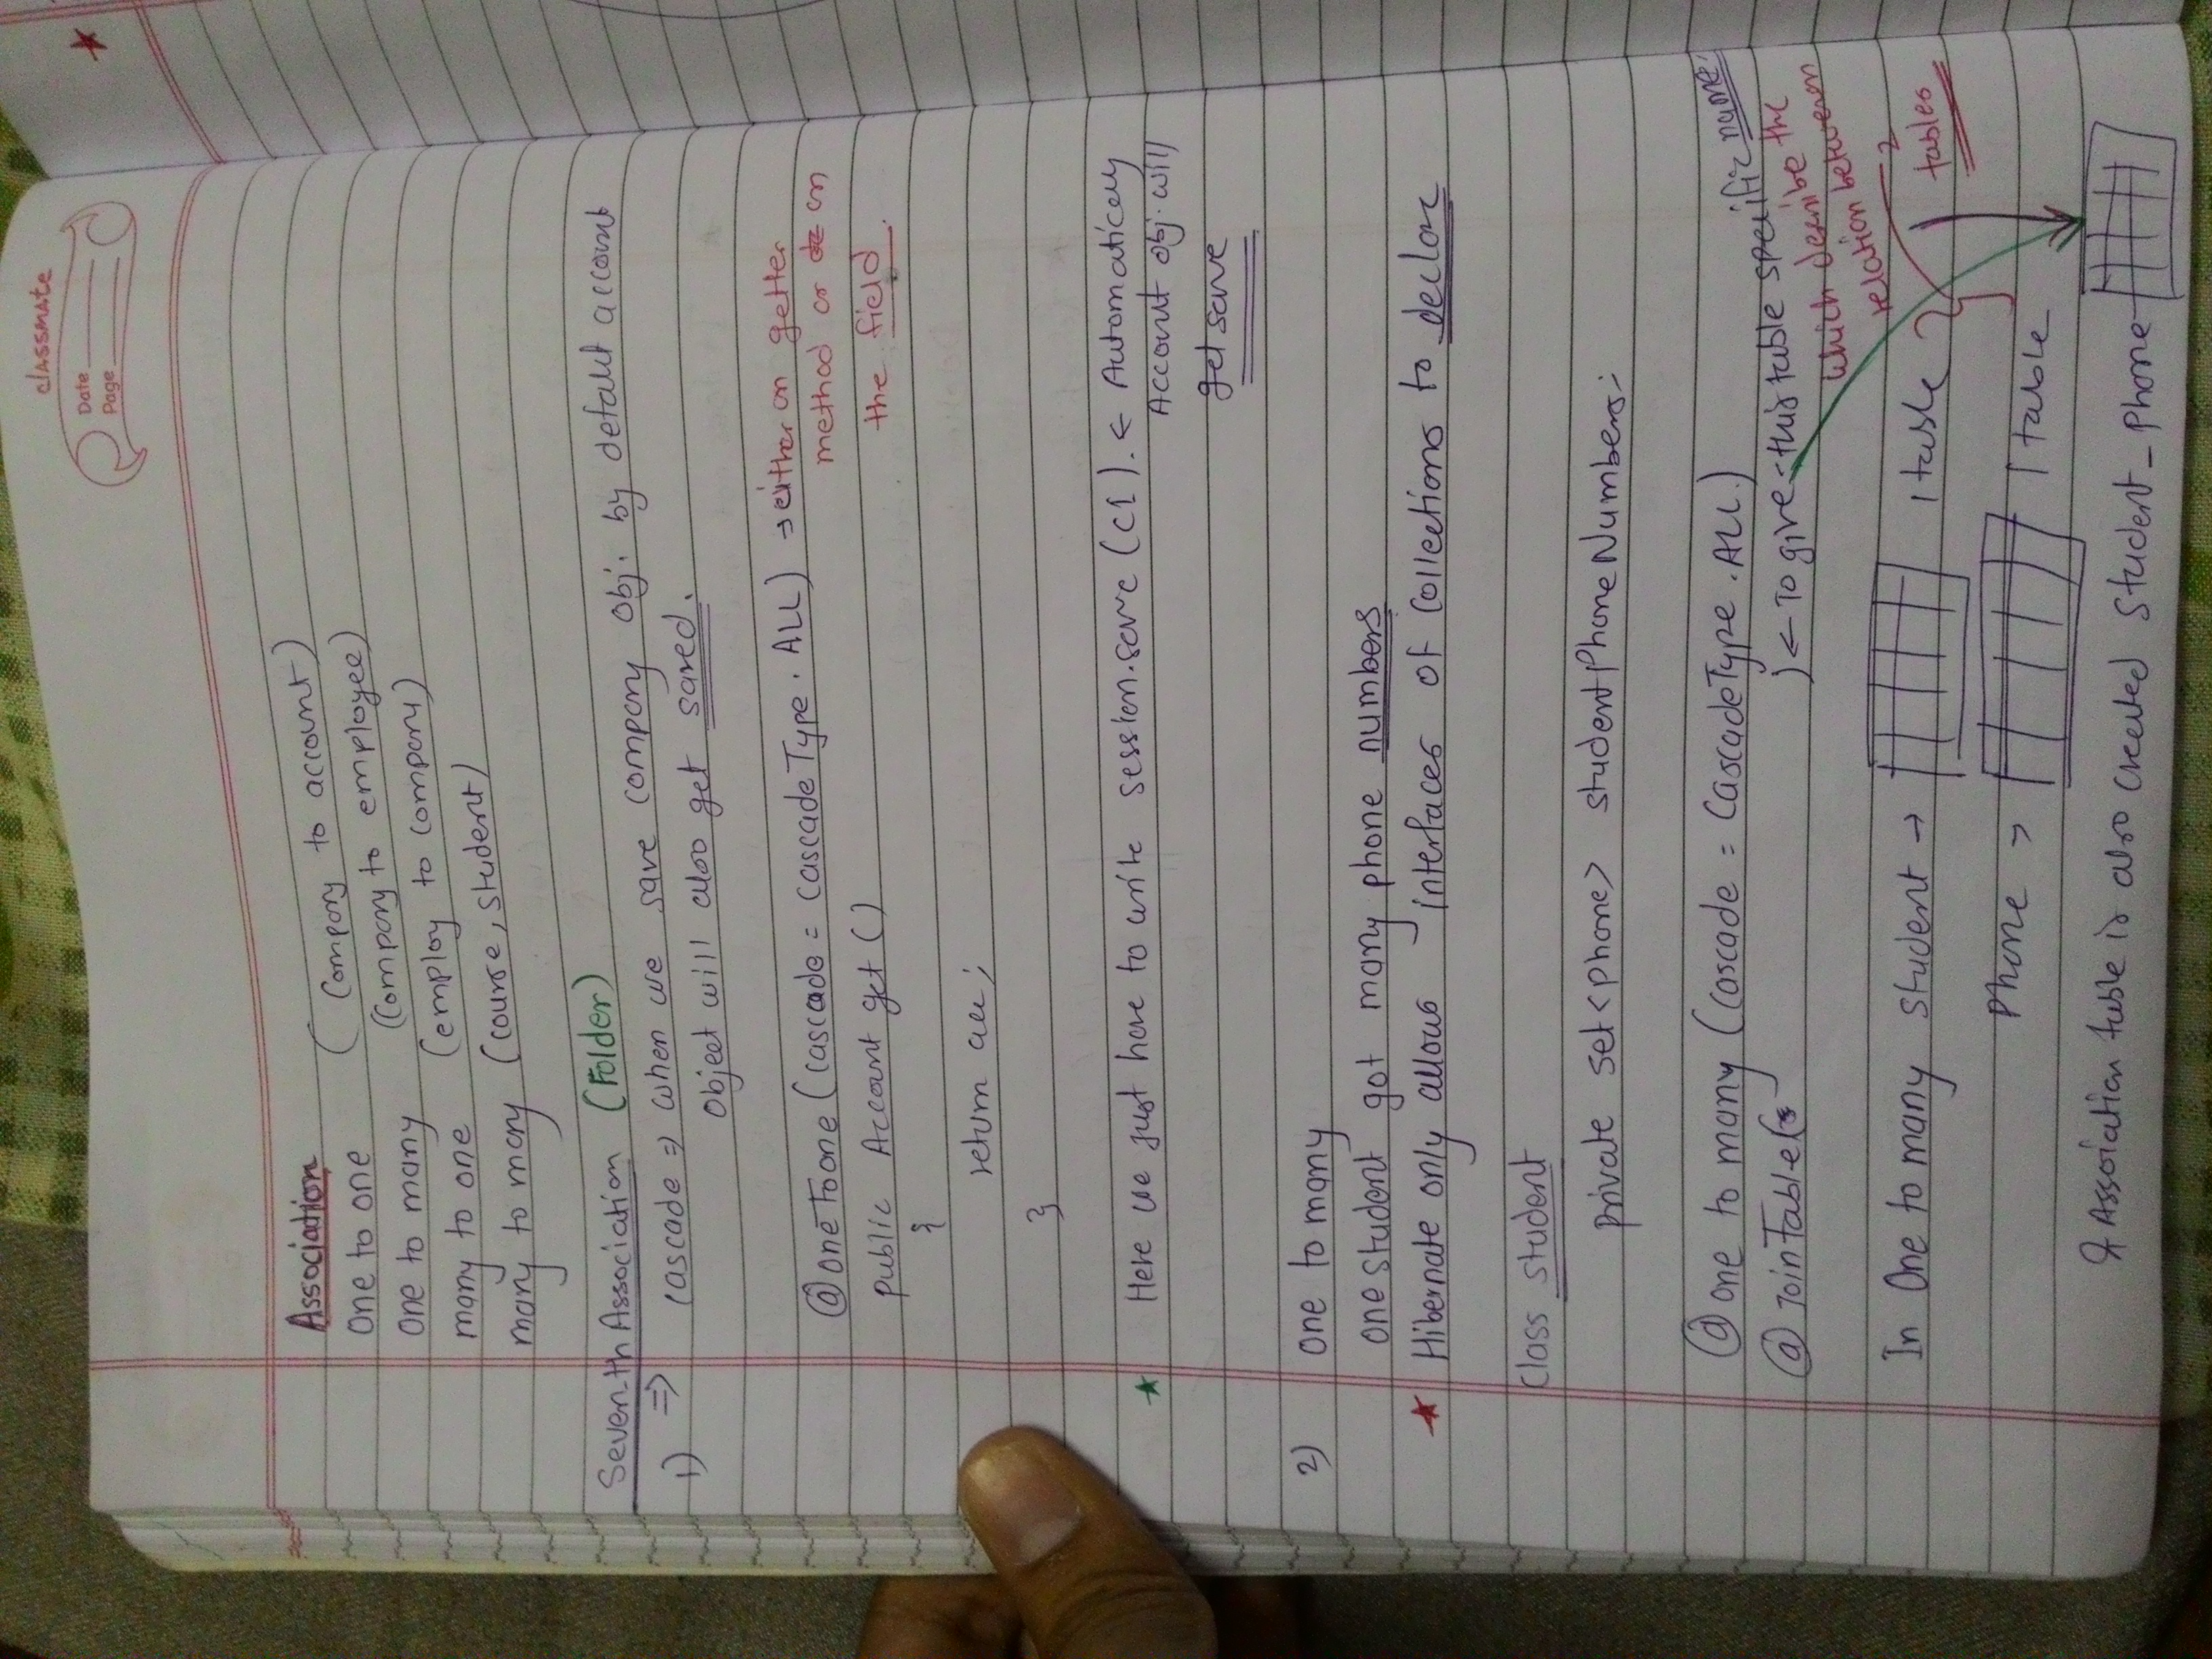 classmate
Date
Page
Association
one to one (company to account)
one to many (company to employee)
many to one (employ to company)
many to many (course, student)
Seventh Association (Folder)
1) => cascade => when we save company obj. by default account
object will also get saved.
@oneToone (cascade = cascadeType.ALL) → either on getter
method or on
public Account get () the field.
{
return acc;
}
★ Here we just have to write session.save (c1). ← Automatically
Account obj. will
get save
2) one to many
one student got many phone numbers
★ Hibernate only allows interfaces of collections to declare
class student
private set<phone> studentPhoneNumbers;
@ one to many (cascade = CascadeType.ALL)
@ JoinTable( ) ← To give this table specific name.
which describe the
relation between
2
tables
In One to many student → 1 table
Phone > 1 table
& Association table is also created student_phone